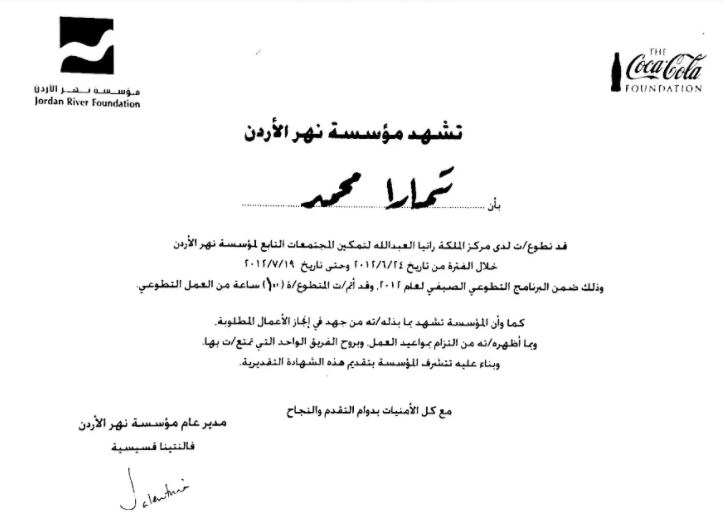 مؤسسة نهر الأردن
Jordan River Foundation
THE
Coca-Cola
FOUNDATION
تشهد مؤسسة نهر الأردن
بأن تمارا محمد
قد تطوع/ت لدى مركز الملكة رانيا العبدالله لتمكين المجتمعات التابع لمؤسسة نهر الأردن
خلال الفترة من تاريخ ٢٠١٢/٦/٢٤ وحتى تاريخ ٢٠١٢/٧/١٩
وذلك ضمن البرنامج التطوعي الصيفي لعام ٢٠١٢، وقد أتم/ت المتطوع/ة (١٠٠) ساعة من العمل التطوعي.
كما وأن المؤسسة تشهد بما بذله/ته من جهد في إنجاز الأعمال المطلوبة،
وبما أظهره/ته من التزام بمواعيد العمل، وبروح الفريق الواحد التي تمتع/ت بها.
وبناء عليه تتشرف المؤسسة بتقديم هذه الشهادة التقديرية.
مع كل الأمنيات بدوام التقدم والنجاح
مدير عام مؤسسة نهر الأردن
فالنتينا قسيسية
Valentina